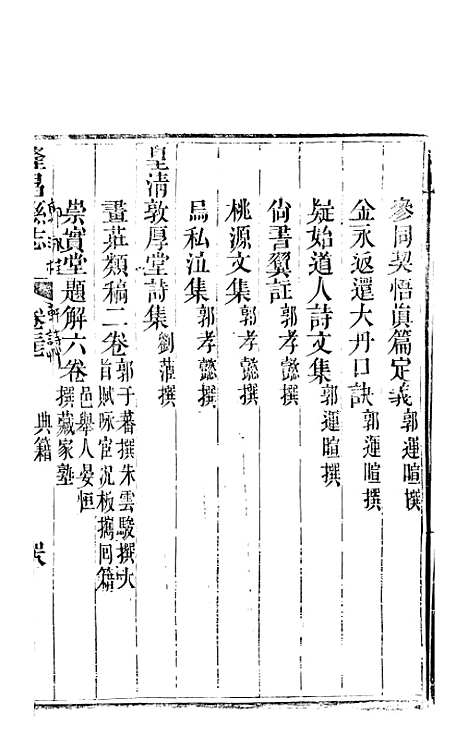 參同契悟真篇定義 郭運暄撰
金永返還大丹口訣 郭運暄撰
疑始道人詩文集 郭運暄撰
尚書翼註 郭孝懿撰
桃源文集 郭孝懿撰
烏私泣集 郭孝懿撰
皇清敦厚堂詩集 劉蓷撰
畫莊類稿二卷 郭于蕃撰朱雲駿撰大
首賦咏宦沉板攜回籍
崇實堂題解六卷 邑舉人晏恒
撰藏家塾
隆昌縣志 卷 典籍